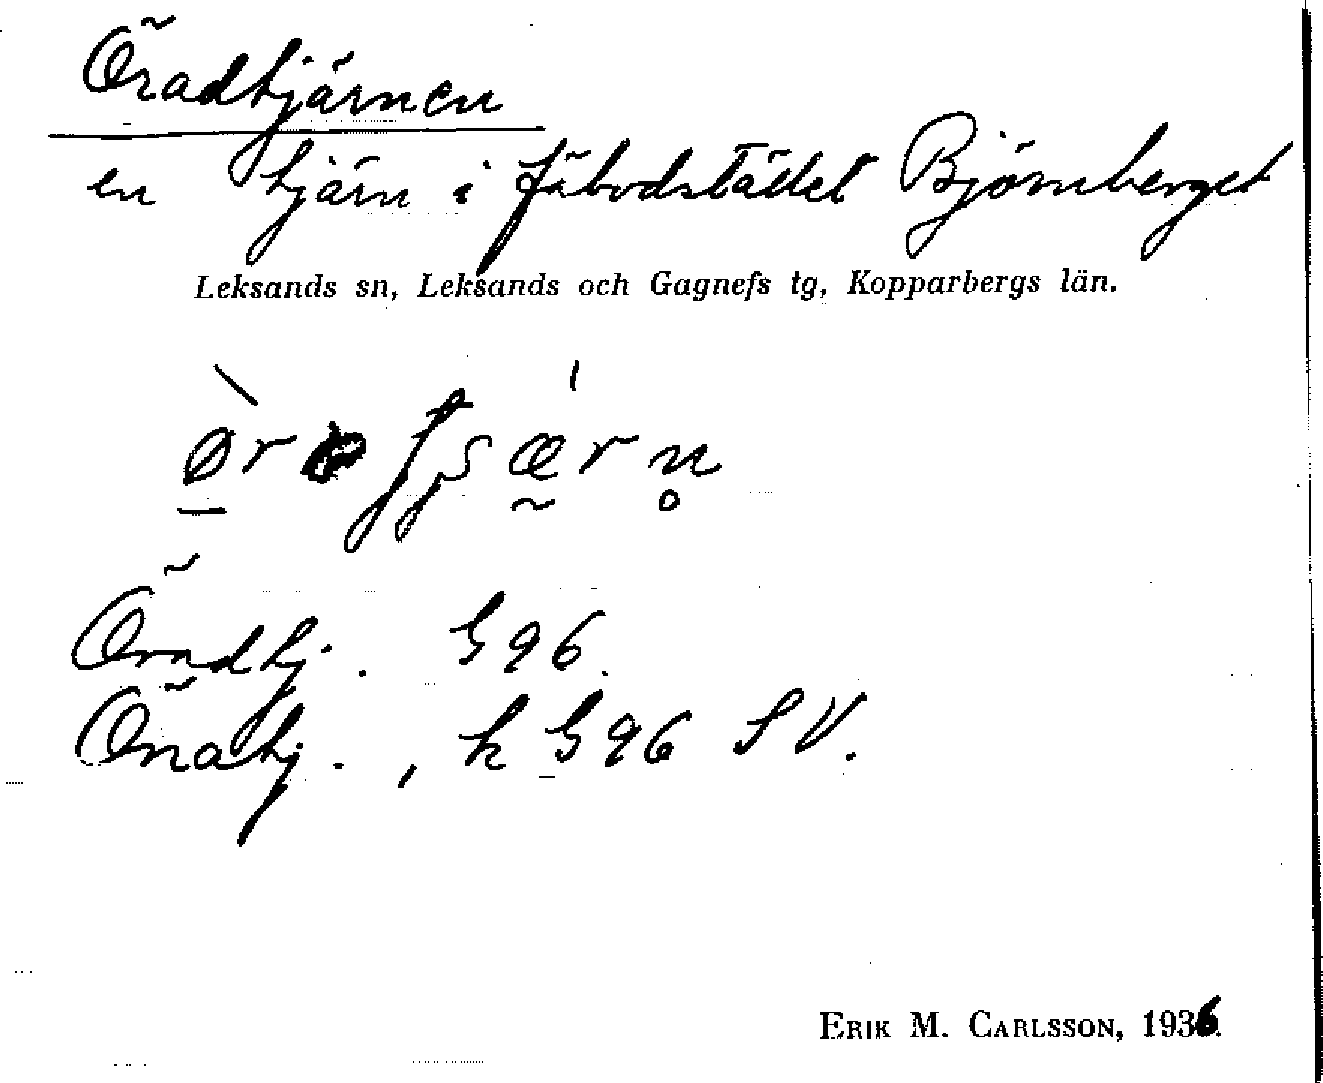 Öradtjärnen
en tjärn i fäbodstället Björnberget
Leksands sn, Leksands och Gagnefs tg, Kopparbergs län.
Öradtj. G96.
Önatj., k G96 SV.
ERIK M. CARLSSON, 1936.